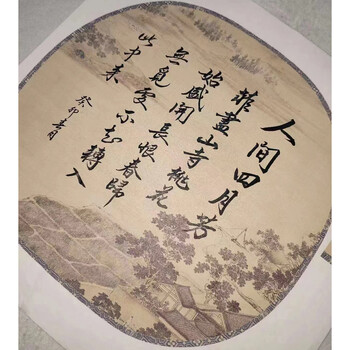 人間四月芳
菲盡山寺桃花
始盛開長恨春歸
無覓處不知轉入
此中來
癸卯月